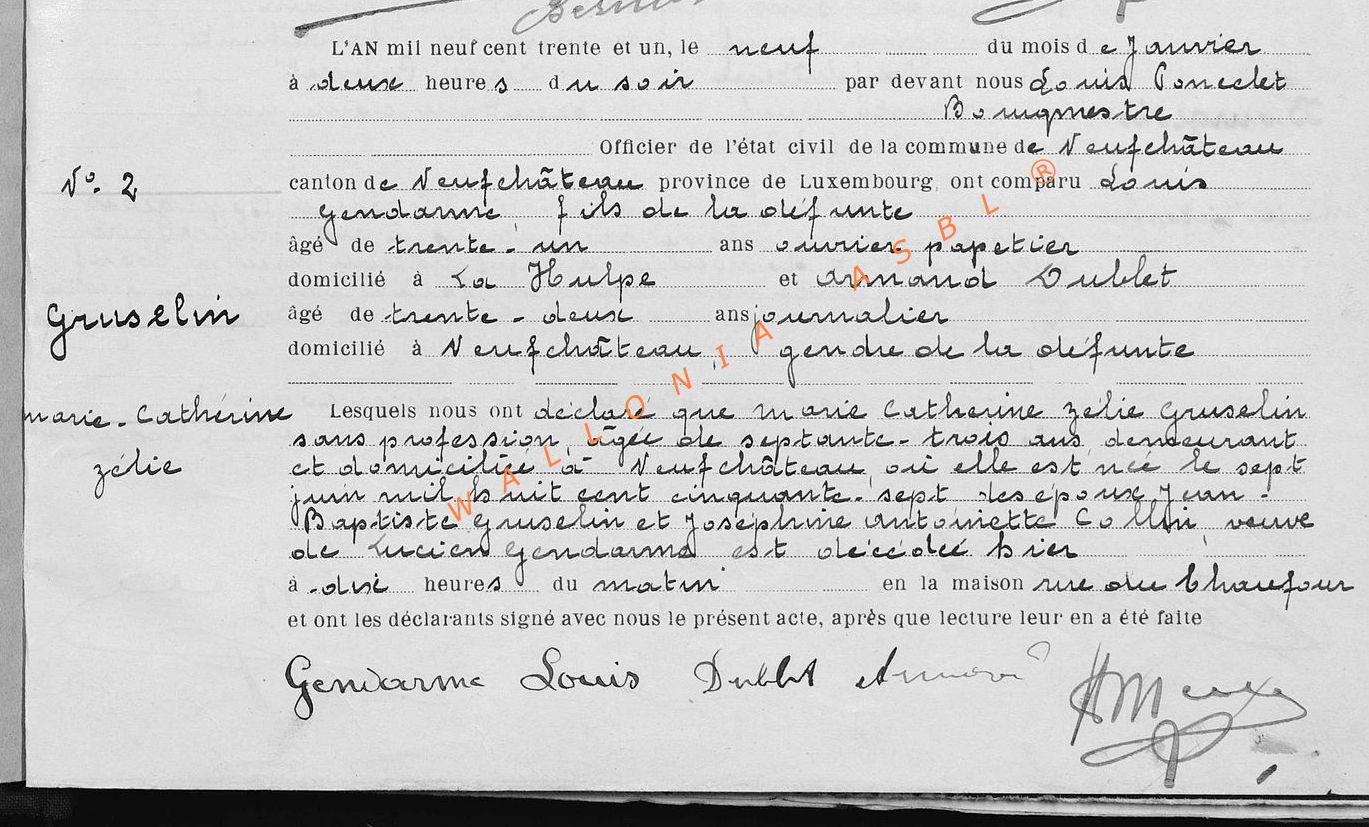 L'AN mil neuf cent trente et un, le neuf du mois de Janvier
à deux heures du soir par devant nous Louis Poncelet
Bourgmestre
Officier de l'état civil de la commune de Neufchâteau
N° 2
canton de Neufchâteau province de Luxembourg ont comparu Louis
Gendarme fils de la défunte
âgé de trente-un ans ouvrier papetier
domicilié à La Hulpe et Armand Dublet
Gruselin
âgé de trente-deux ans journalier
domicilié à Neufchâteau, gendre de la défunte
marie-Cathérine
zélie
Lesquels nous ont déclaré que marie Catherine zélie Gruselin
sans profession, âgée de septante-trois ans demeurant
et domiciliée à Neufchâteau où elle est née le sept
juin mil huit cent cinquante-sept des époux Jean-
Baptiste Gruselin et Joséphine Antoinette Collin veuve
de Lucien Gendarme est décédée hier
à dix heures du matin en la maison rue du Chaufour
et ont les déclarants signé avec nous le présent acte, après que lecture leur en a été faite
Gendarme Louis Dublet Armand
WALLONIA ASBL ®